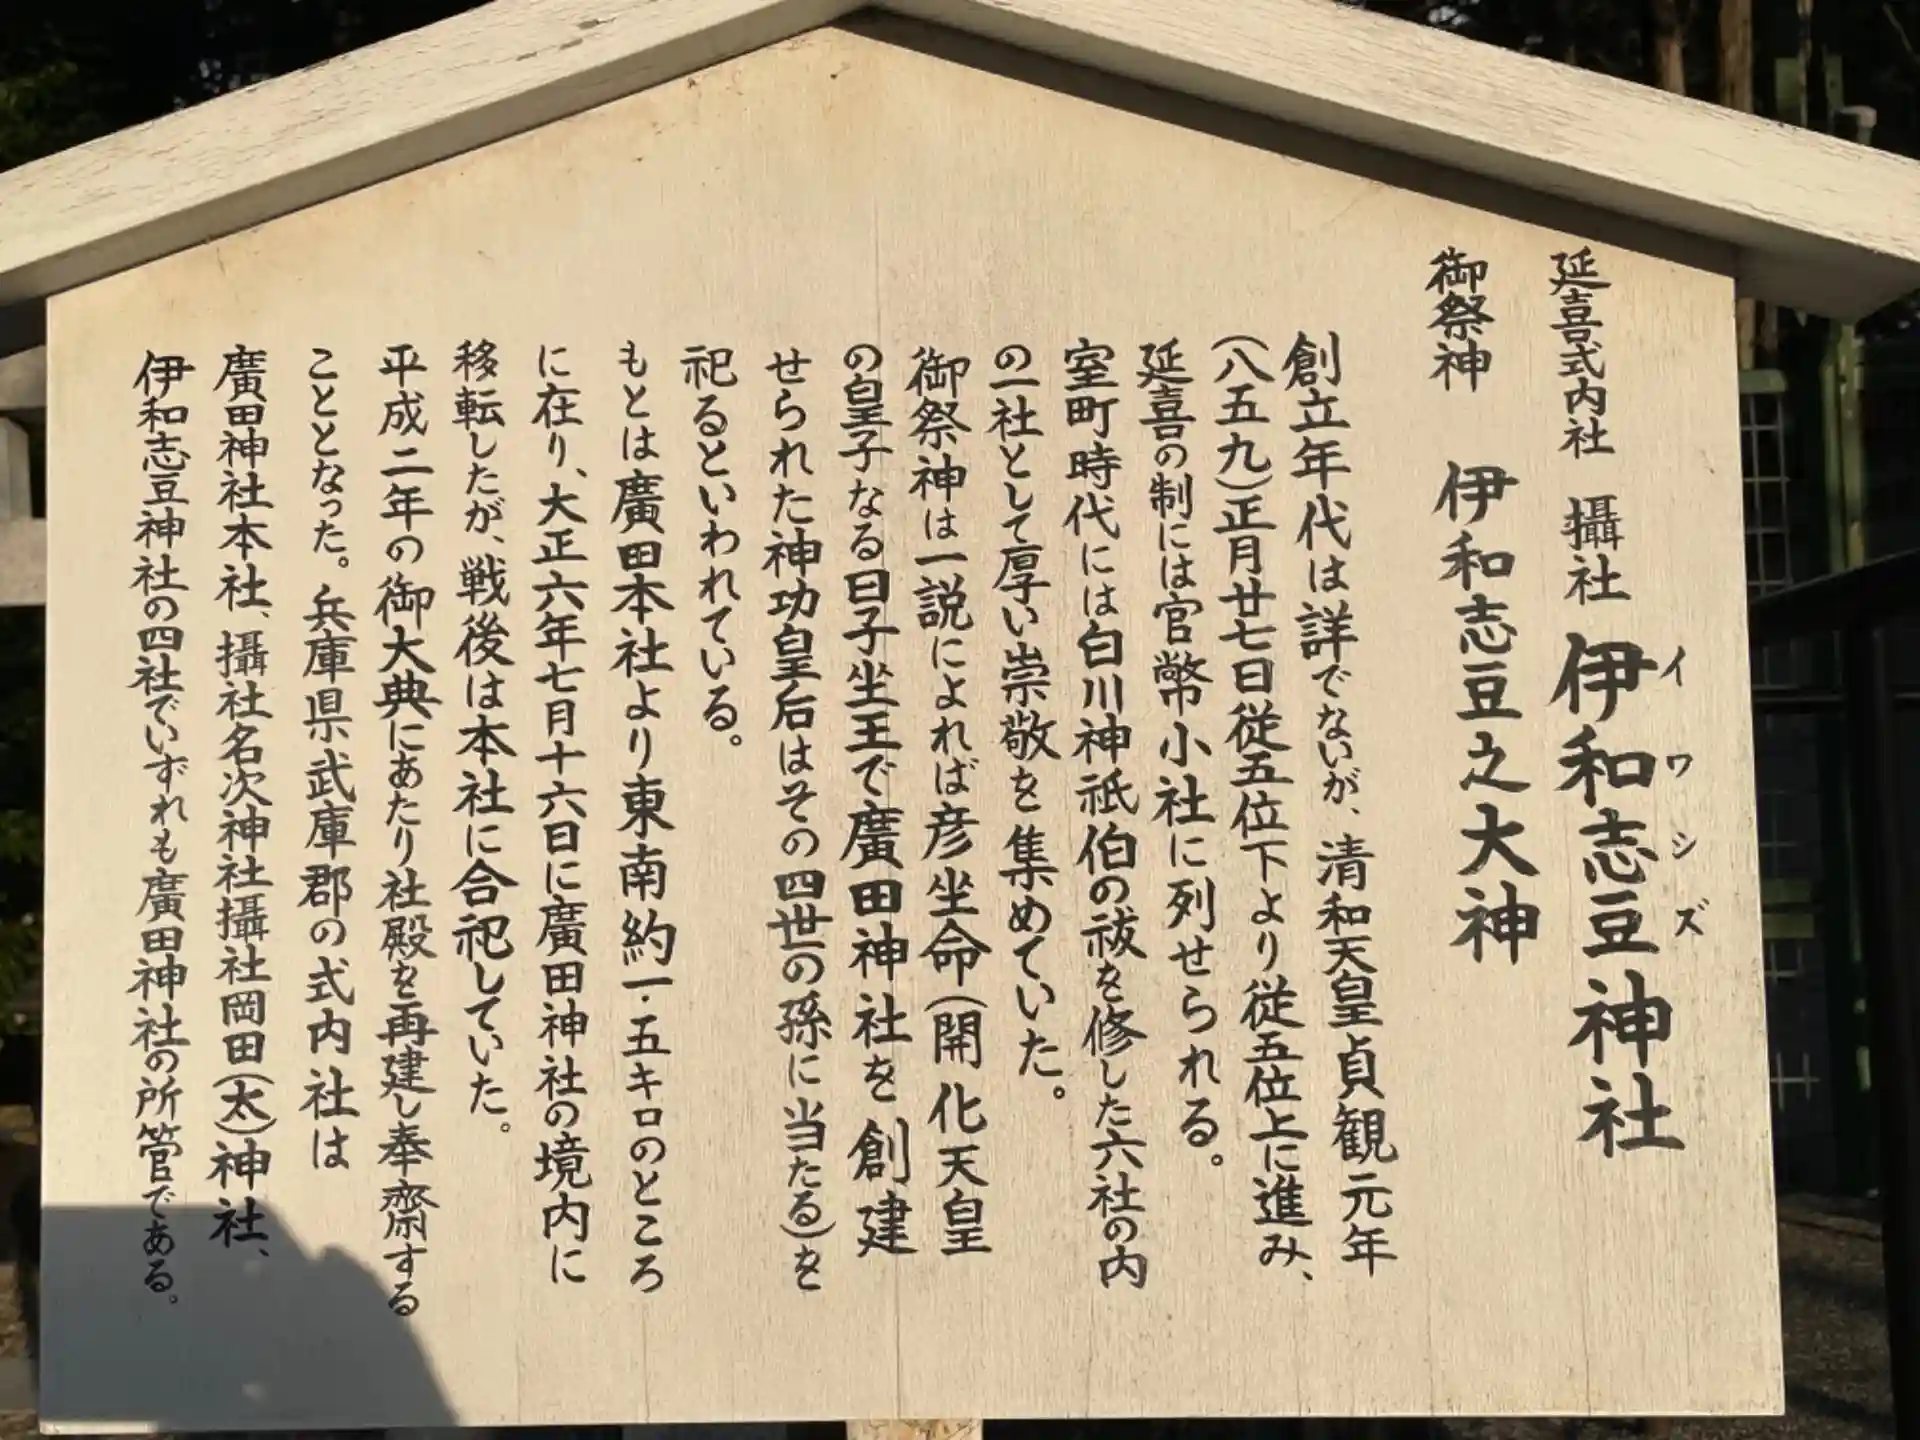 延喜式内社　攝社　伊和志豆神社
イワシズ
御祭神　伊和志豆之大神
創立年代は詳でないが、清和天皇貞観元年
(八五九)正月廿七日従五位下より従五位上に進み、
延喜の制には官幣小社に列せられる。
室町時代には白川神祇伯の祓を修した六社の内
の一社として厚い崇敬を集めていた。
御祭神は一説によれば彦坐命(開化天皇
の皇子なる日子坐王で廣田神社を創建
せられた神功皇后はその四世の孫に当たる)を
祀るといわれている。
もとは廣田本社より東南約一・五キロのところ
に在り、大正六年七月十六日に廣田神社の境内に
移転したが、戦後は本社に合祀していた。
平成二年の御大典にあたり社殿を再建し奉齋する
こととなった。兵庫県武庫郡の式内社は
廣田神社本社、攝社名次神社攝社岡田(太)神社、
伊和志豆神社の四社でいずれも廣田神社の所管である。